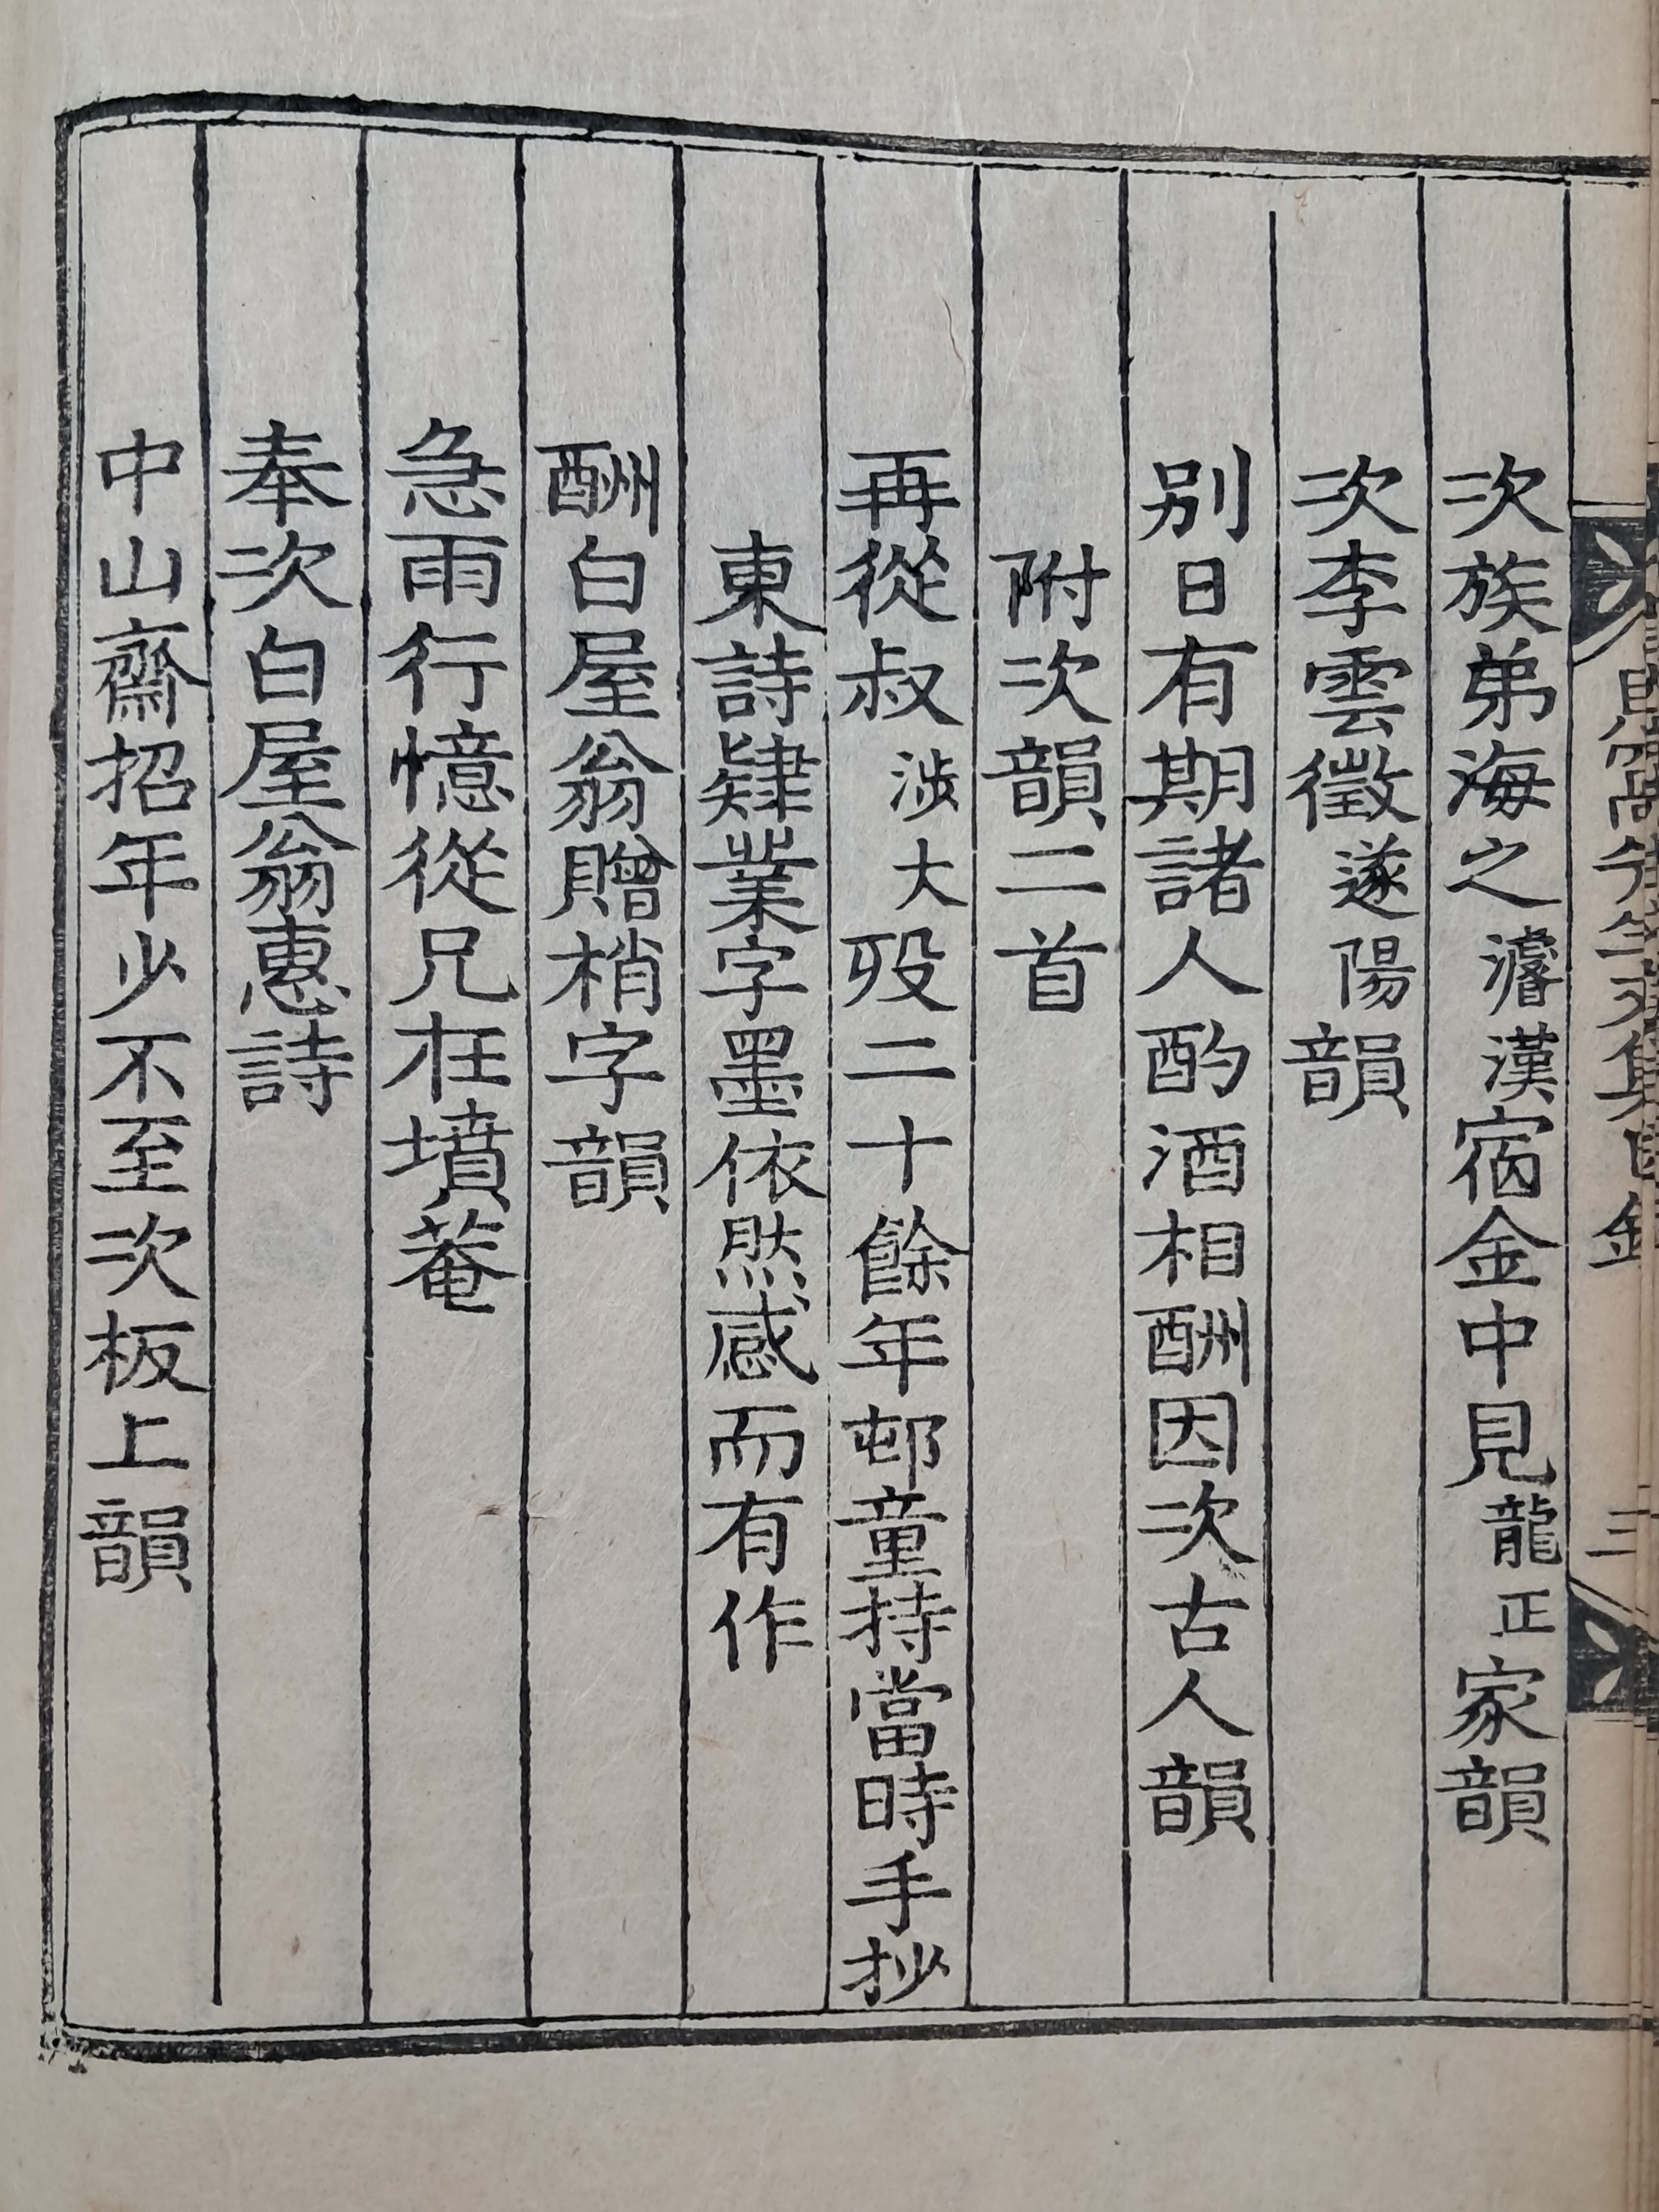 次族弟海之濬漢宿金中見龍正家韻
次李雲徵遂陽韻
别日有期諸人酌酒相酬因次古人韻
附次韻二首
再從叔涉大歿二十餘年邨童持當時手抄
東詩肄業字墨依然感而有作
酬白屋翁贈梢字韻
急雨行憶從兄在墳菴
奉次白屋翁惠詩
中山齋招年少不至次板上韻
先生文集目錄
三